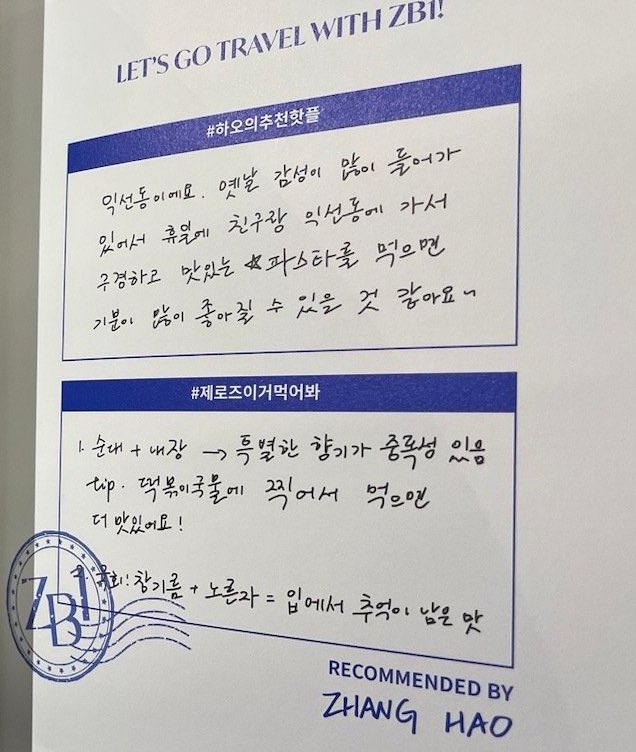 LET'S GO TRAVEL WITH ZB1!
#하오의추천핫플
익선동이에요. 옛날 감성이 많이 들어가
있어서 휴일에 친구랑 익선동에 가서
구경하고 맛있는 ☆파스타를 먹으면
기분이 많이 좋아질 수 있을 것 같아요~
#제로즈이거먹어봐
1. 순대 + 내장 → 특별한 향기가 중독성 있음
tip. 떡볶이국물에 찍어서 먹으면
더 맛있어요!
2. 육회! 참기름 + 노른자 = 입에서 추억이 남은 맛
ZB1
RECOMMENDED BY
ZHANG HAO